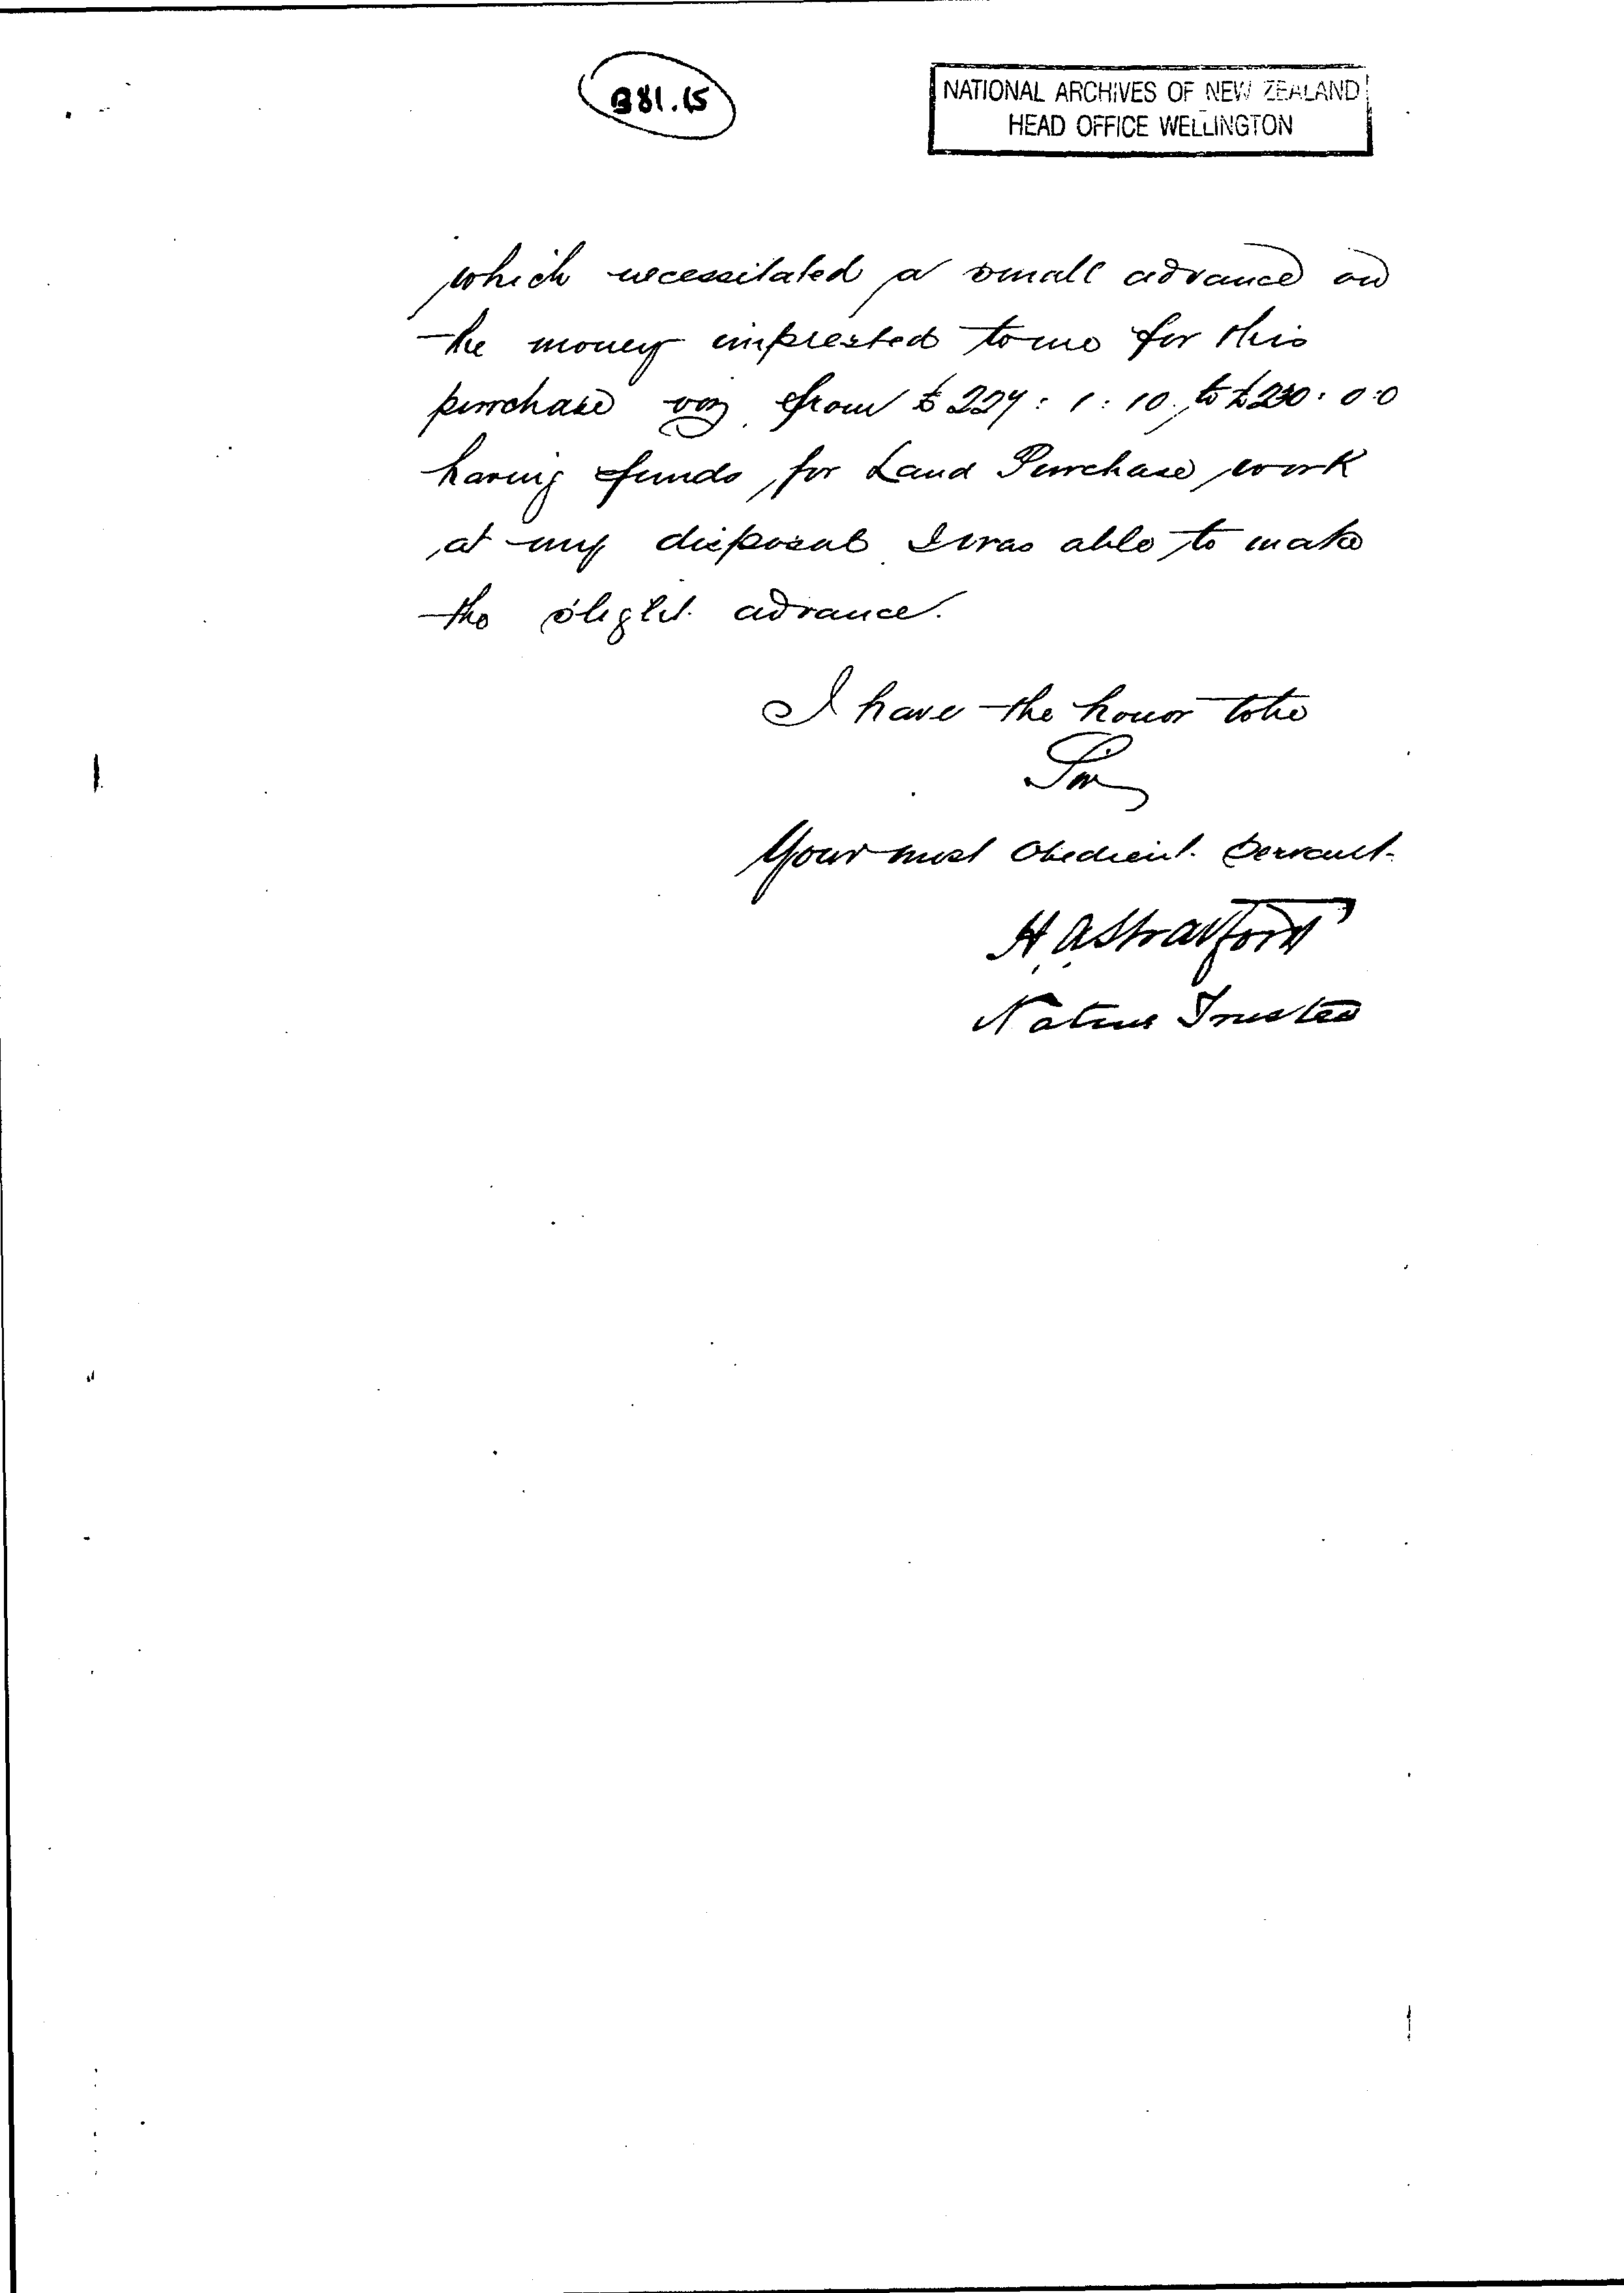 B81.15
NATIONAL ARCHIVES OF NEW ZEALAND
HEAD OFFICE WELLINGTON
which necessitated a small advance on
the money imprested to me for this
purchase viz from £ : 1 : 10. to £230. 0.0
having funds, for Land Purchase, work
at my disposal I was able to make
the slight advance.
I have the honor to be
Sir
Your most Obedient Servant.
H. A Stratford
Native Trustee